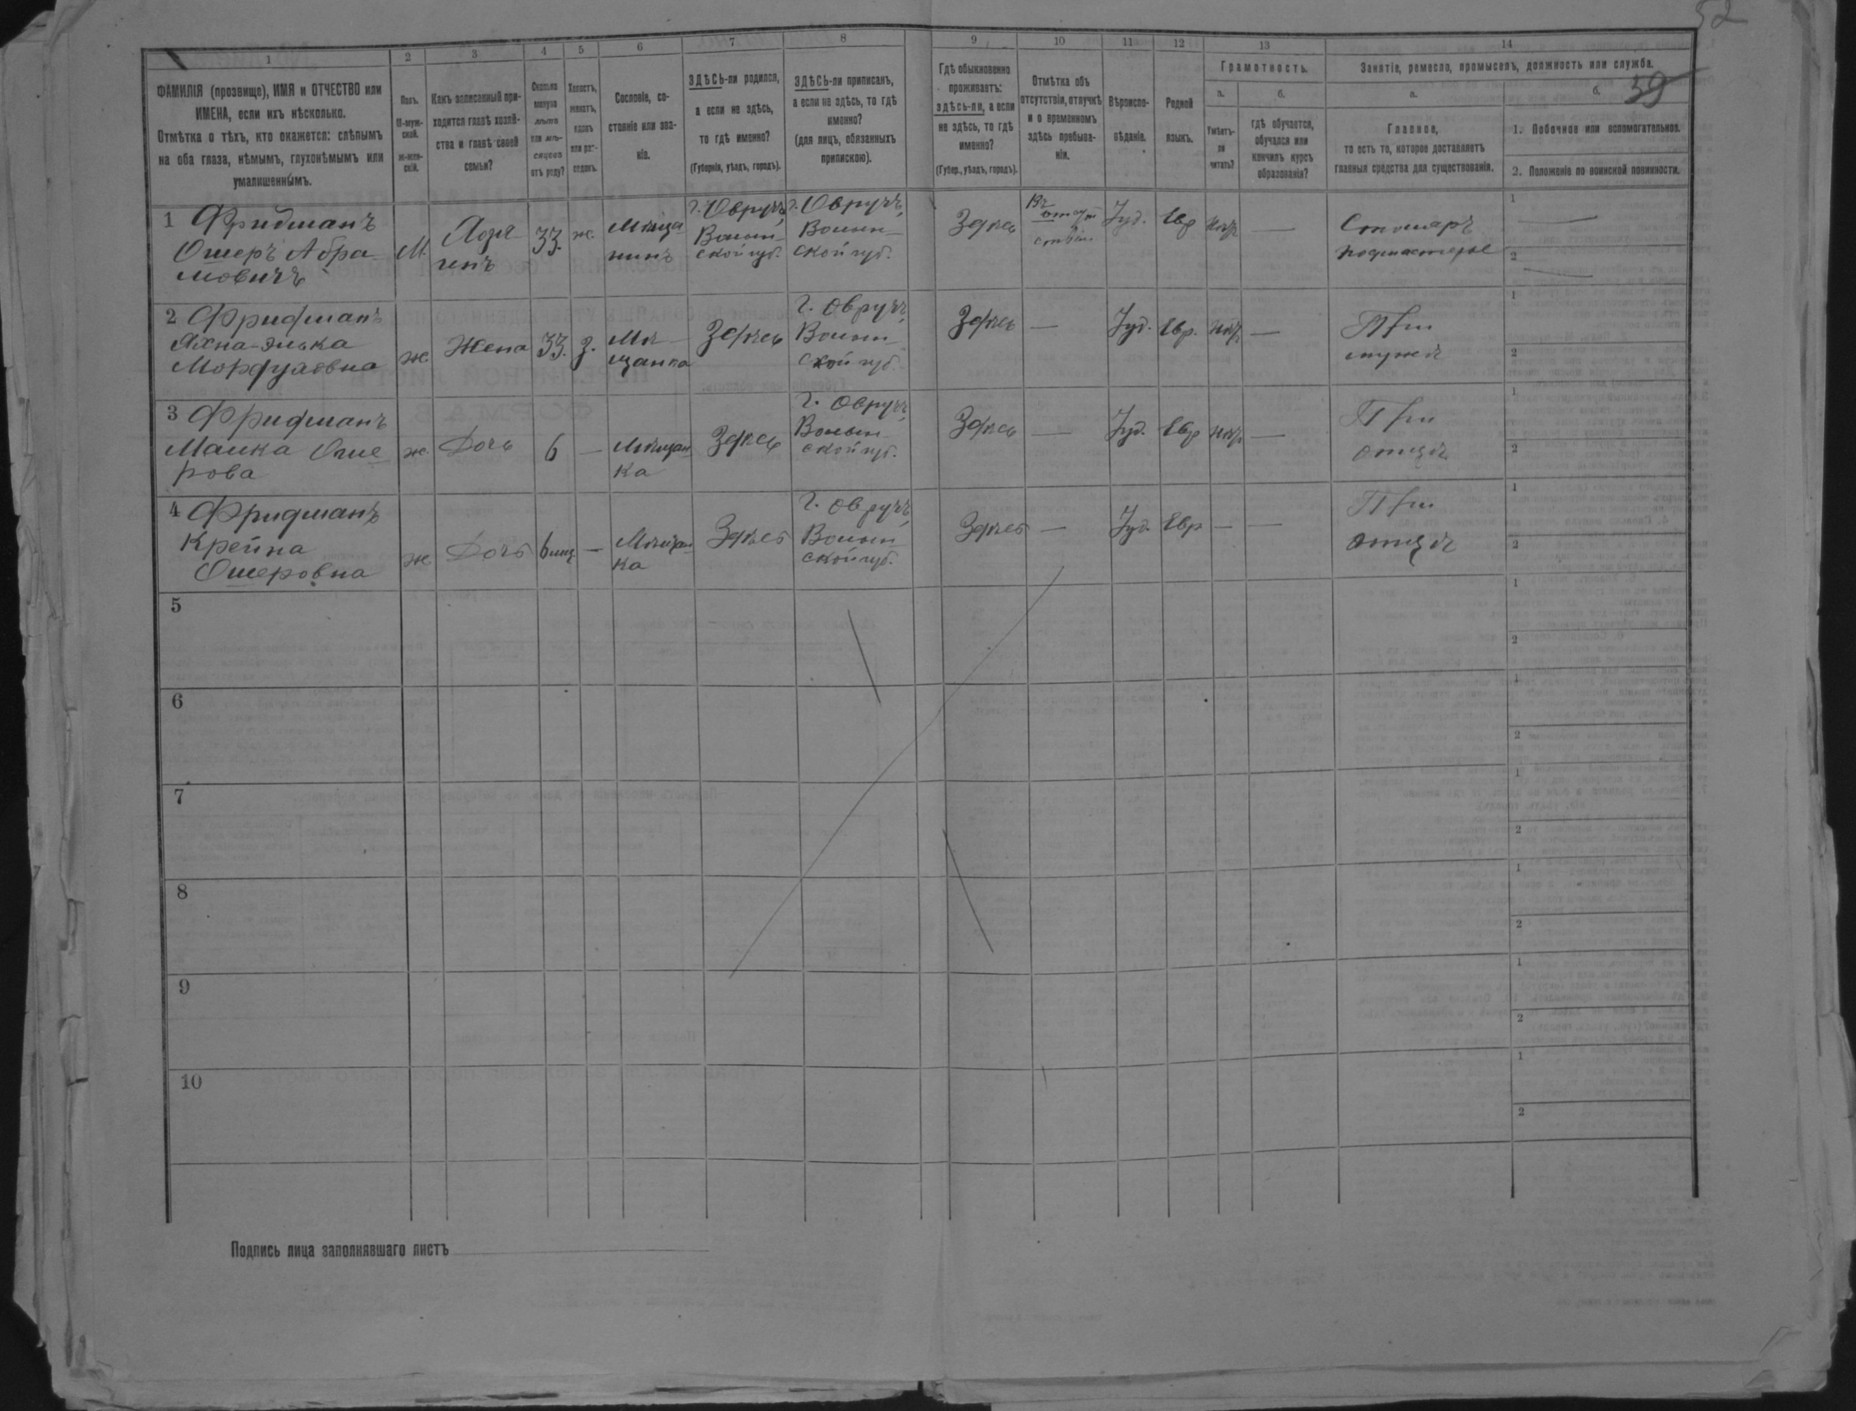 52
59
1
2
3.
4
5
6
7
8
9
10
11
12
13
14
ФАМИЛІЯ (прозвище), ИМЯ и ОТЧЕСТВО или
ИМЕНА, если ихъ нѣсколько.
Отмѣтка о тѣхъ, кто окажется: слѣпымъ
на оба глаза, нѣмымъ, глухонѣмымъ или
умалишеннымъ.
Полъ.
М-муж-
ской.
Ж-жен-
скій.
Какъ записанный при-
ходится главѣ хозяй-
ства и главѣ своей
семьи?
Сколько
минуло
лѣтъ
или мѣ-
сяцевъ
отъ роду?
Холостъ,
женатъ,
вдовъ
или раз-
веденъ.
Сословіе, со-
стояніе или зва-
ніе.
ЗДѢСЬ-ли родился,
а если не здѣсь,
то гдѣ именно?
(Губернія, уѣздъ, городъ).
ЗДѢСЬ-ли приписанъ,
а если не здѣсь, то гдѣ
именно?
(для лицъ, обязанныхъ
припискою).
Гдѣ обыкновенно
проживаетъ:
здѣсь-ли, а если
не здѣсь, то гдѣ
именно?
(Губер., уѣздъ, городъ).
Отмѣтка объ
отсутствіи, отлучкѣ
и о временномъ
здѣсь пребыва-
ніи.
Вѣроиспо-
вѣданіе.
Родной
языкъ.
Грамотность.
а.
Умѣетъ-
ли
читать?
б.
гдѣ обучается,
обучался или
кончилъ курсъ
образованія?
Занятіе, ремесло, промыселъ, должность или служба.
а.
Главное,
то есть то, которое доставляетъ
главныя средства для существованія.
б.
1. Побочное или вспомогательное.
2. Положеніе по воинской повинности.
1 Фридманъ
Ошеръ Абра-
мовичъ
М.
33.
ж
Мѣща-
нинъ
г. Овручъ,
Волын-
ской губ.
г. Овручъ,
Волын-
ской губ.
Здѣсь
Въ
отсут
ствіи
Іуд.
Евр
нѣт
—
Столяръ
подмастерье
1 —
2 —
2 Фридманъ
Элька
ж
Жена
33.
з.
Мѣ-
щанка
Здѣсь
г. Овручъ,
Волын-
ской губ.
Здѣсь
—
Іуд.
Евр.
нѣт
—
При
мужѣ
1
2
3 Фридманъ
Малка Оше-
рова
ж
Дочь
6
—
Мѣщан
ка
Здѣсь
г. Овручъ,
Волын-
ской губ.
Здѣсь
—
Іуд.
Евр
нѣт
—
При
отцѣ
1
2
4 Фридманъ
Крейна
Ошеровна
ж
Дочь
6 мц
—
Мѣщан
ка
Здѣсь
г. Овручъ,
Волын-
ской губ.
Здѣсь
—
Іуд
Евр
—
—
При
отцѣ
1
2
5
1
2
6
1
2
7
1
2
8
1
2
9
1
2
10
1
2
Подпись лица заполнявшаго листъ